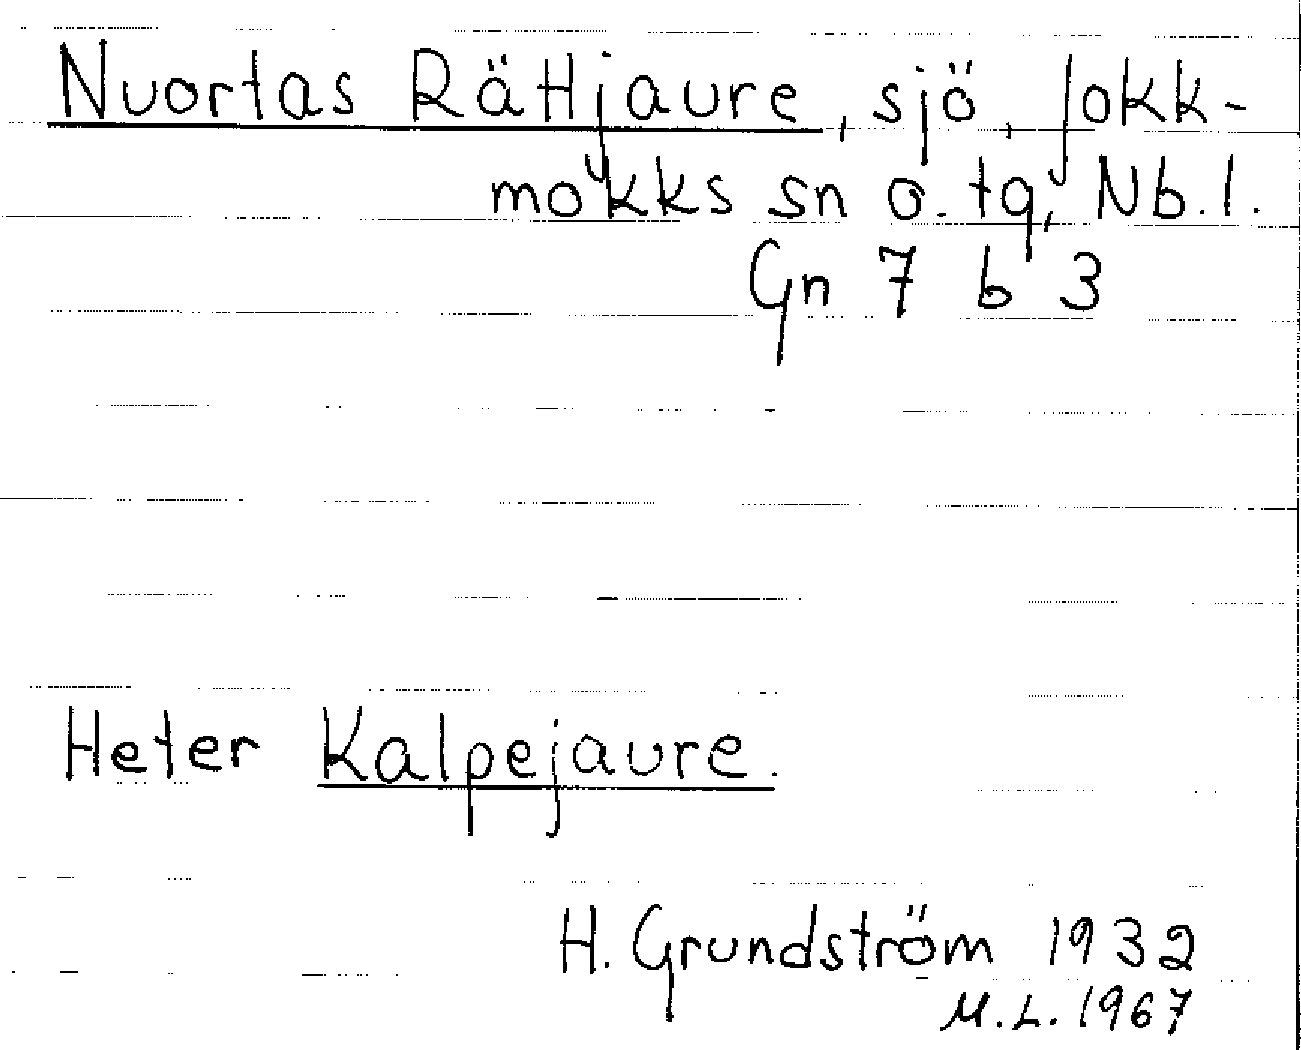 Nuortas Rättjaure, sjö, Jokk-
mokks sn o. tg, Nb.l.
Gn 7 b 3
Heter Kalpejaure.
H. Grundström 1932
M.L. 1967